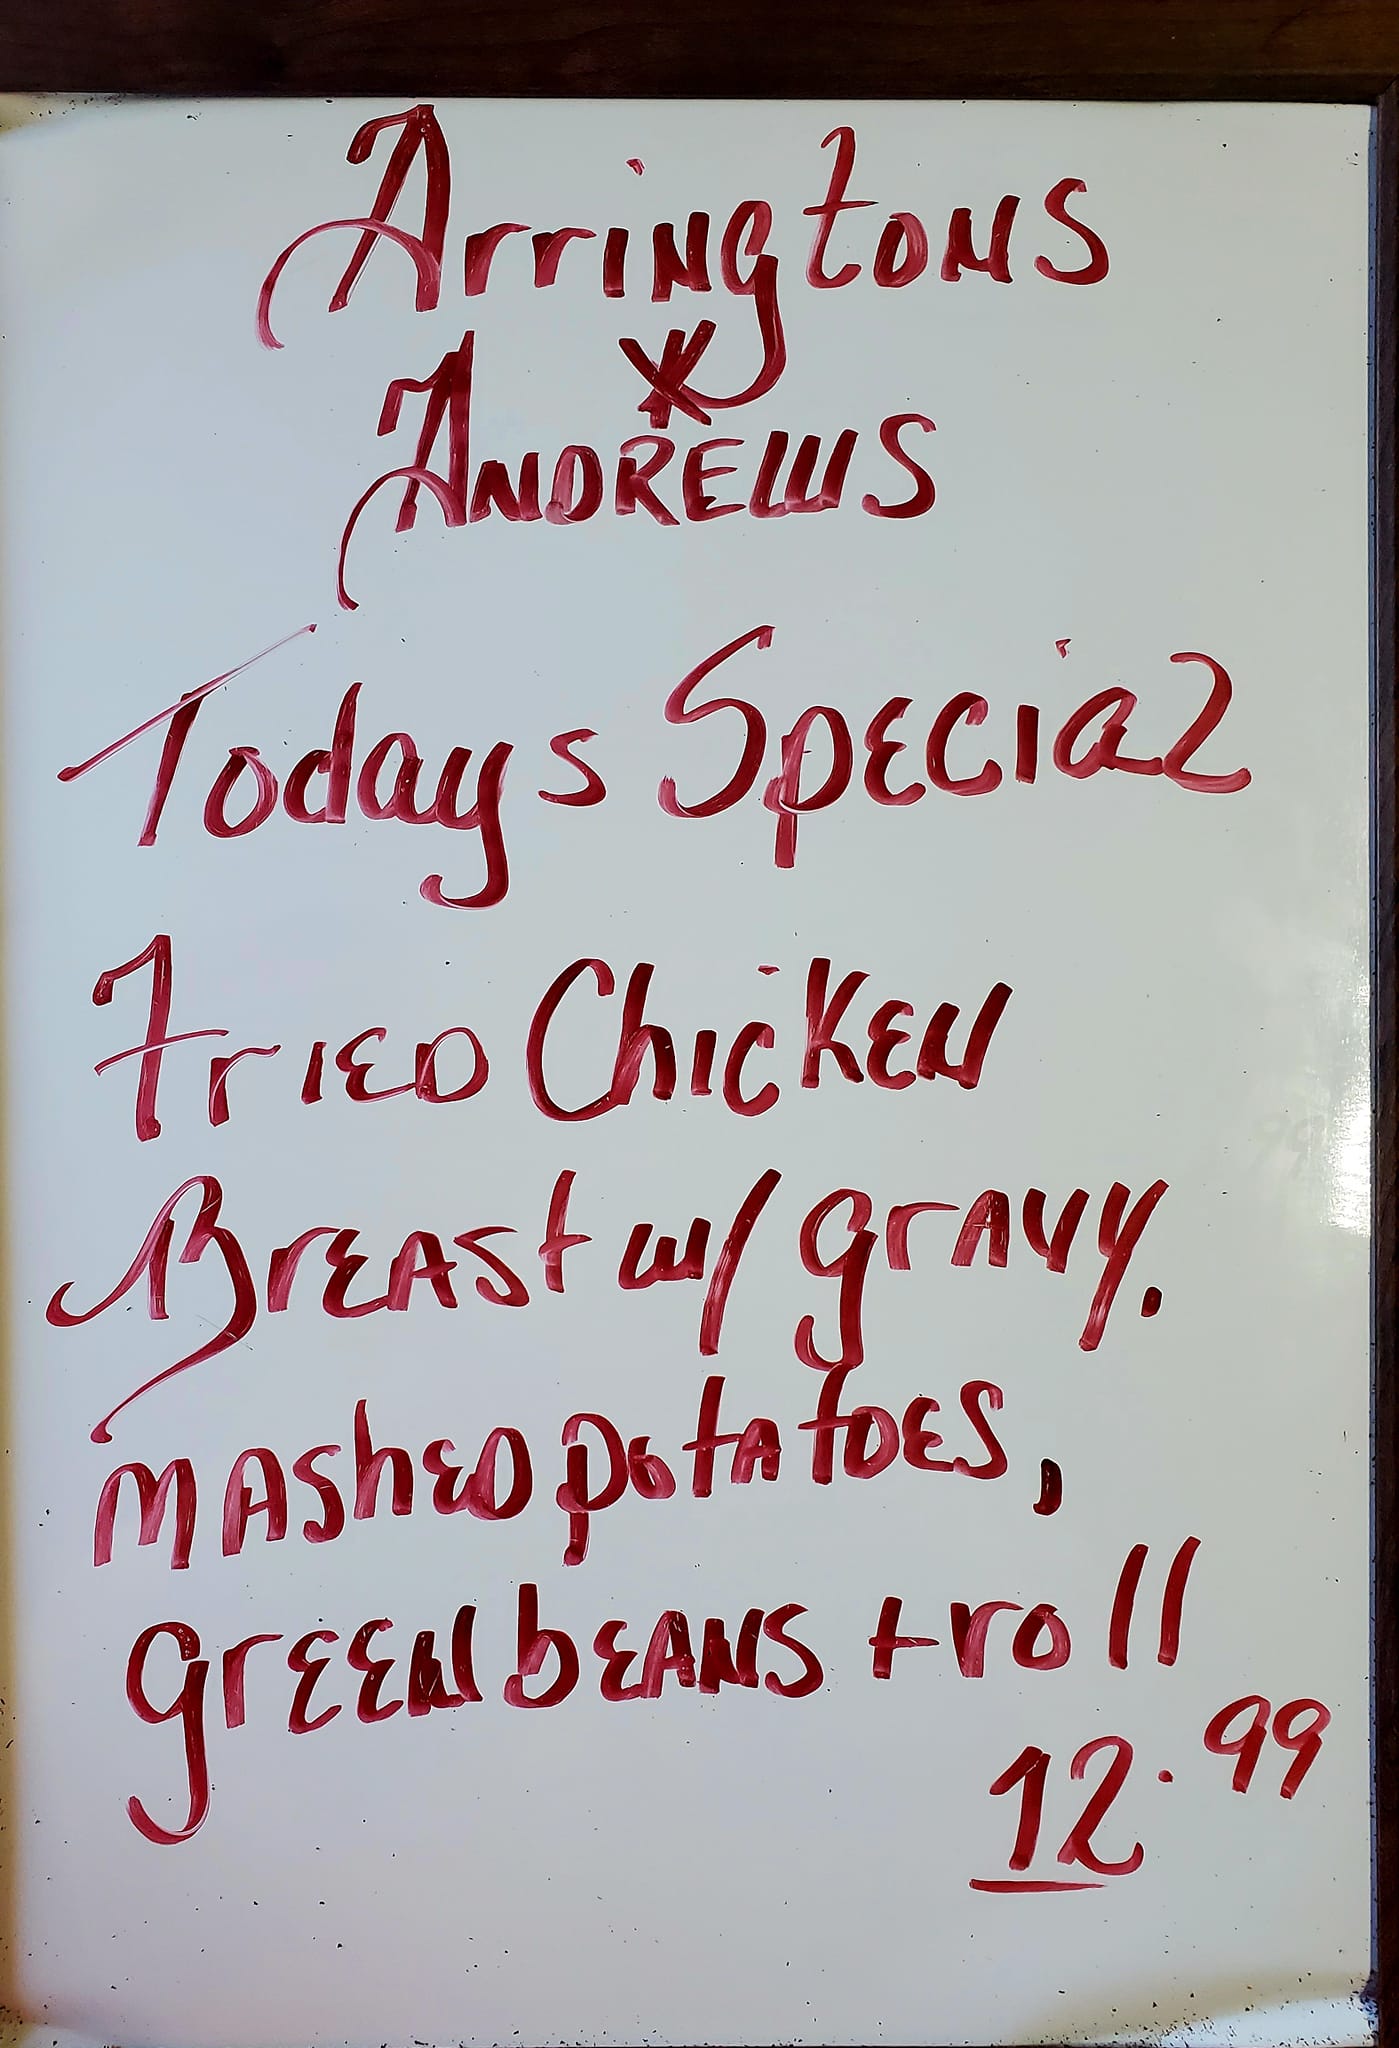 Arringtons
*
ANDREWS
Todays Special
Fried Chicken
Breast w/ gravy.
mashed potatoes,
green beans + roll
12.99